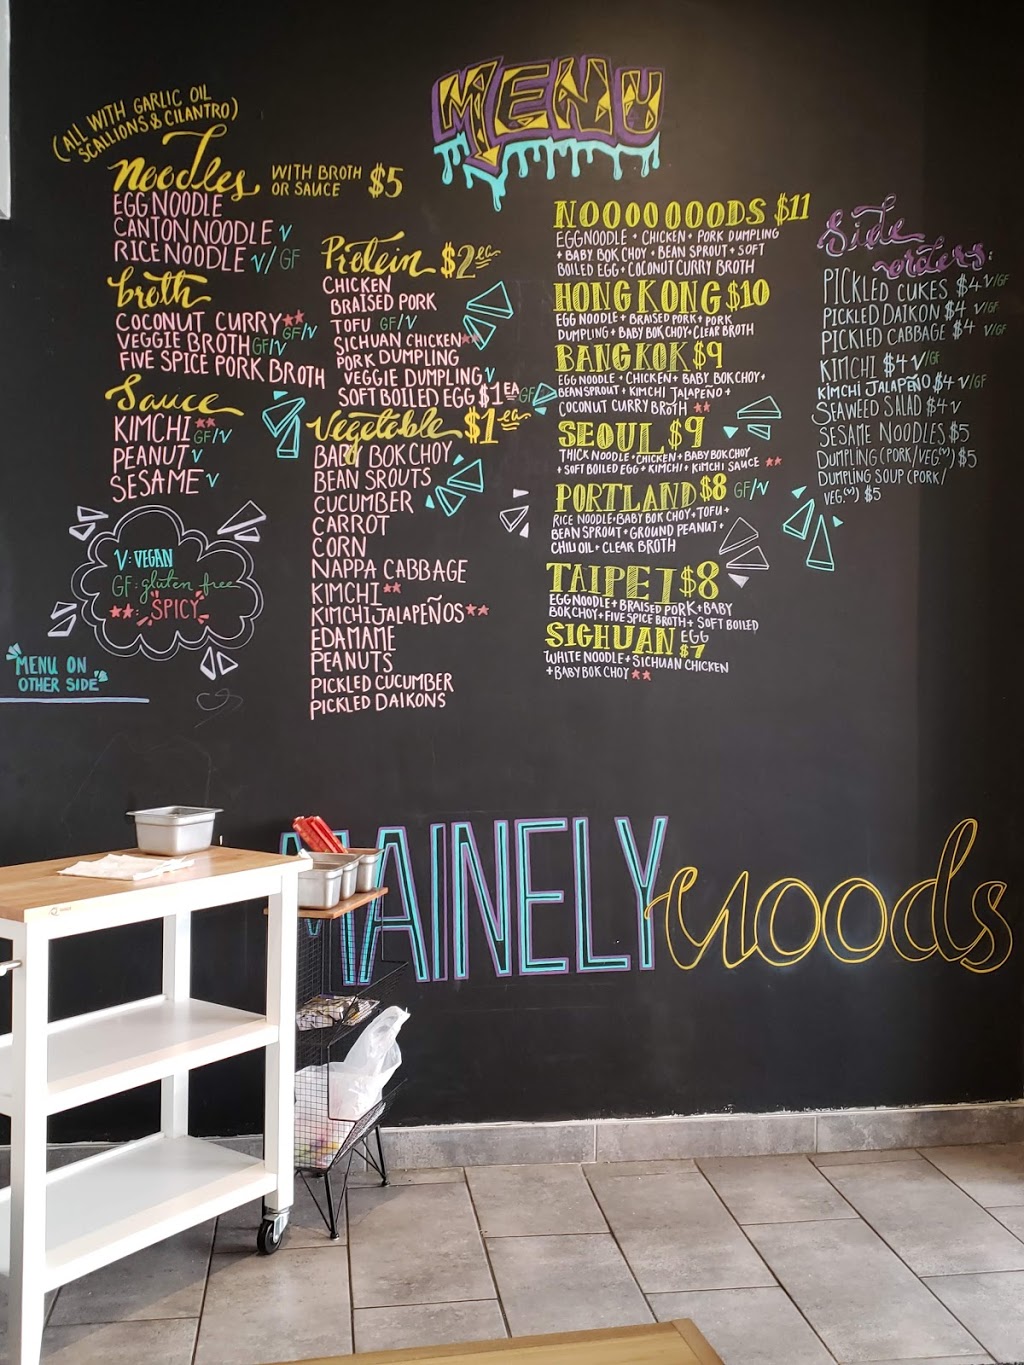 MENU
(ALL WITH GARLIC OIL
SCALLIONS & CILANTRO)
Noodles WITH BROTH
OR SAUCE $5
EGG NOODLE
CANTON NOODLE V
RICE NOODLE V/GF
broth
COCONUT CURRY ** GF/V
VEGGIE BROTH GF/V
FIVE SPICE PORK BROTH
Sauce
KIMCHI ** GF/V
PEANUT V
SESAME V
V: VEGAN
GF: gluten free
**: SPICY
MENU ON
OTHER SIDE
Protein $2 ea
CHICKEN
BRAISED PORK
TOFU GF/V
SICHUAN CHICKEN **
PORK DUMPLING
VEGGIE DUMPLING V
SOFT BOILED EGG $1 EA GF
Vegetable $1 ea
BABY BOK CHOY
BEAN SROUTS
CUCUMBER
CARROT
CORN
NAPPA CABBAGE
KIMCHI **
KIMCHI JALAPEÑOS **
EDAMAME
PEANUTS
PICKLED CUCUMBER
PICKLED DAIKONS
NOOOOOOODS $11
EGG NOODLE + CHICKEN + PORK DUMPLING
+ BABY BOK CHOY + BEAN SPROUT + SOFT
BOILED EGG + COCONUT CURRY BROTH
HONG KONG $10
EGG NOODLE + BRAISED PORK + PORK
DUMPLING + BABY BOK CHOY + CLEAR BROTH
BANGKOK $9
EGG NOODLE + CHICKEN + BABY BOK CHOY +
BEAN SPROUT + KIMCHI JALAPEÑO +
COCONUT CURRY BROTH **
SEOUL $9
THICK NOODLE + CHICKEN + BABY BOK CHOY
+ SOFT BOILED EGG + KIMCHI + KIMCHI SAUCE **
PORTLAND $8 GF/V
RICE NOODLE + BABY BOK CHOY + TOFU +
BEAN SPROUT + GROUND PEANUT +
CHILI OIL + CLEAR BROTH
TAIPEI $8
EGG NOODLE + BRAISED PORK + BABY
BOK CHOY + FIVE SPICE BROTH + SOFT BOILED
EGG
SIGHUAN $7
WHITE NOODLE + SICHUAN CHICKEN
+ BABY BOK CHOY **
Side
orders:
PICKLED CUKES $4 V/GF
PICKLED DAIKON $4 V/GF
PICKLED CABBAGE $4 V/GF
KIMCHI $4 V/GF
KIMCHI JALAPEÑO $4 V/GF
SEAWEED SALAD $4 V
SESAME NOODLES $5
DUMPLING (PORK/VEG.(V)) $5
DUMPLING SOUP (PORK/
VEG.(V)) $5
MAINELY noods